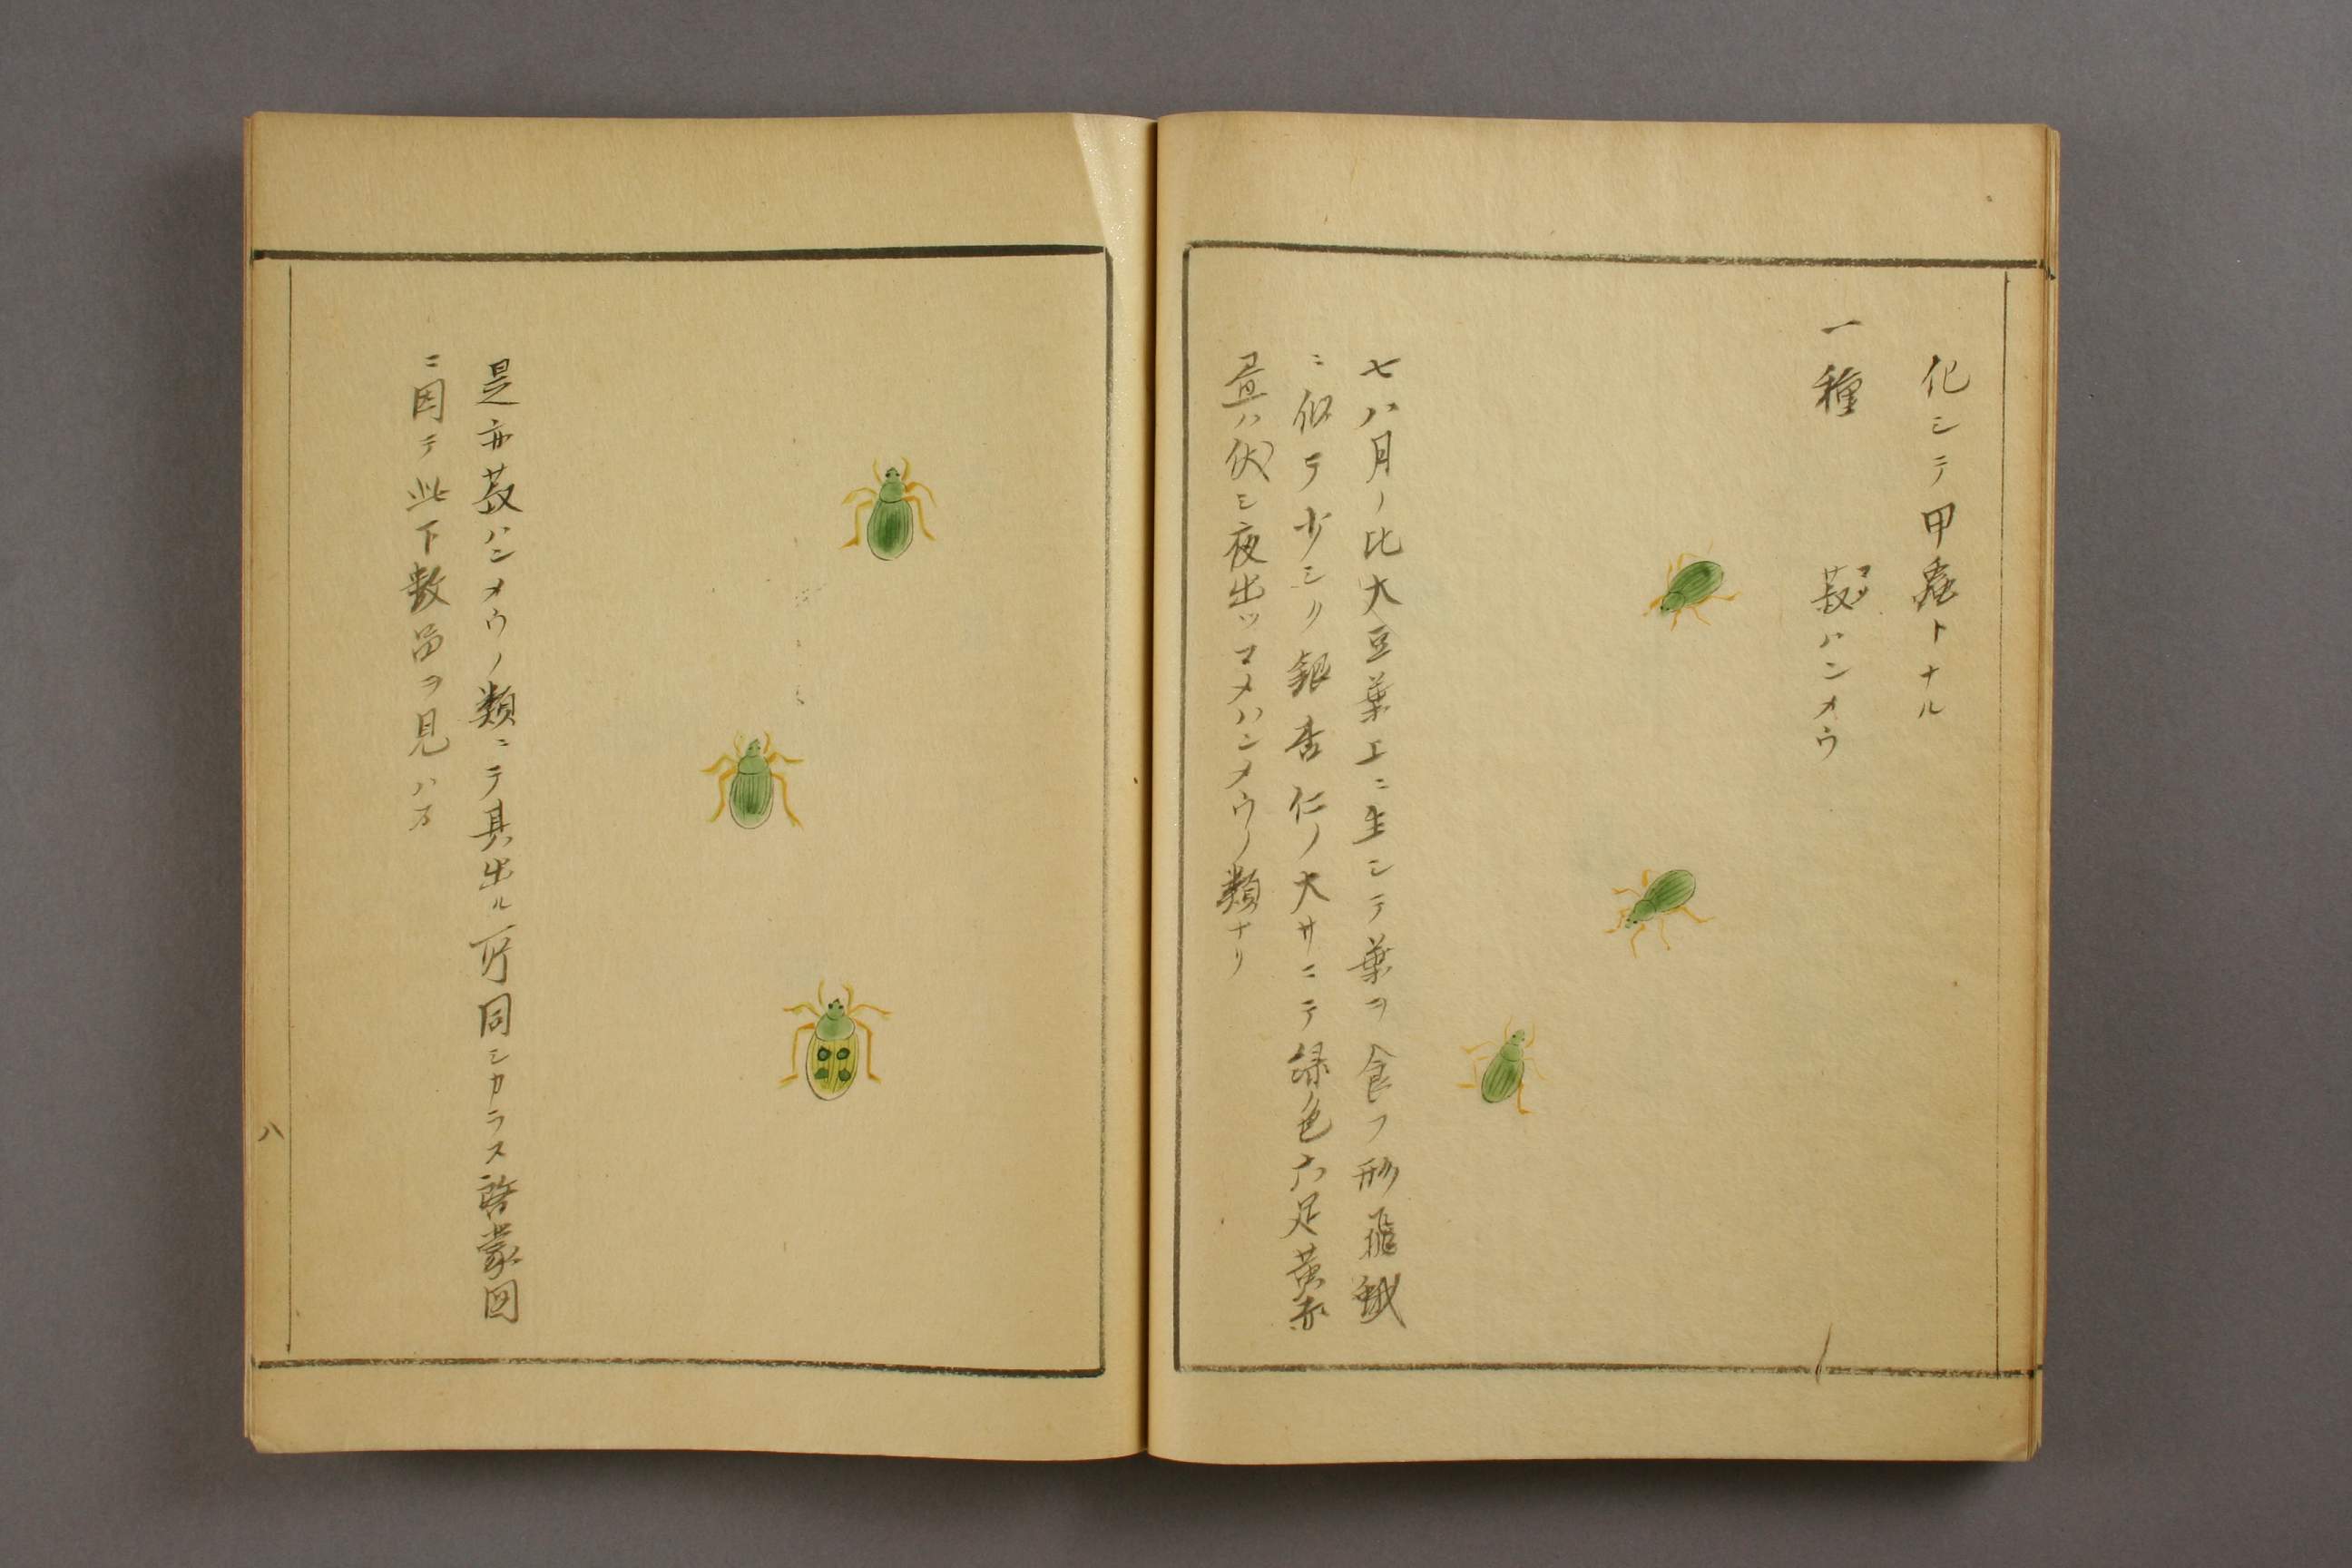 化シテ甲蟲トナル
一種 菽マメハンメウ
七八月ノ比大豆葉上ニ生シテ葉ヲ食フ形飛蛾
ニ似テ少シク銀杏仁ノ大サニテ緑色六足黄赤
昼ハ伏シ夜出ツマメハンメウノ類ナリ
是亦菽ハンメウノ類ニテ其出ル所同シカラス啓蒙図
ニ因テ此下数品ヲ見ハス
八